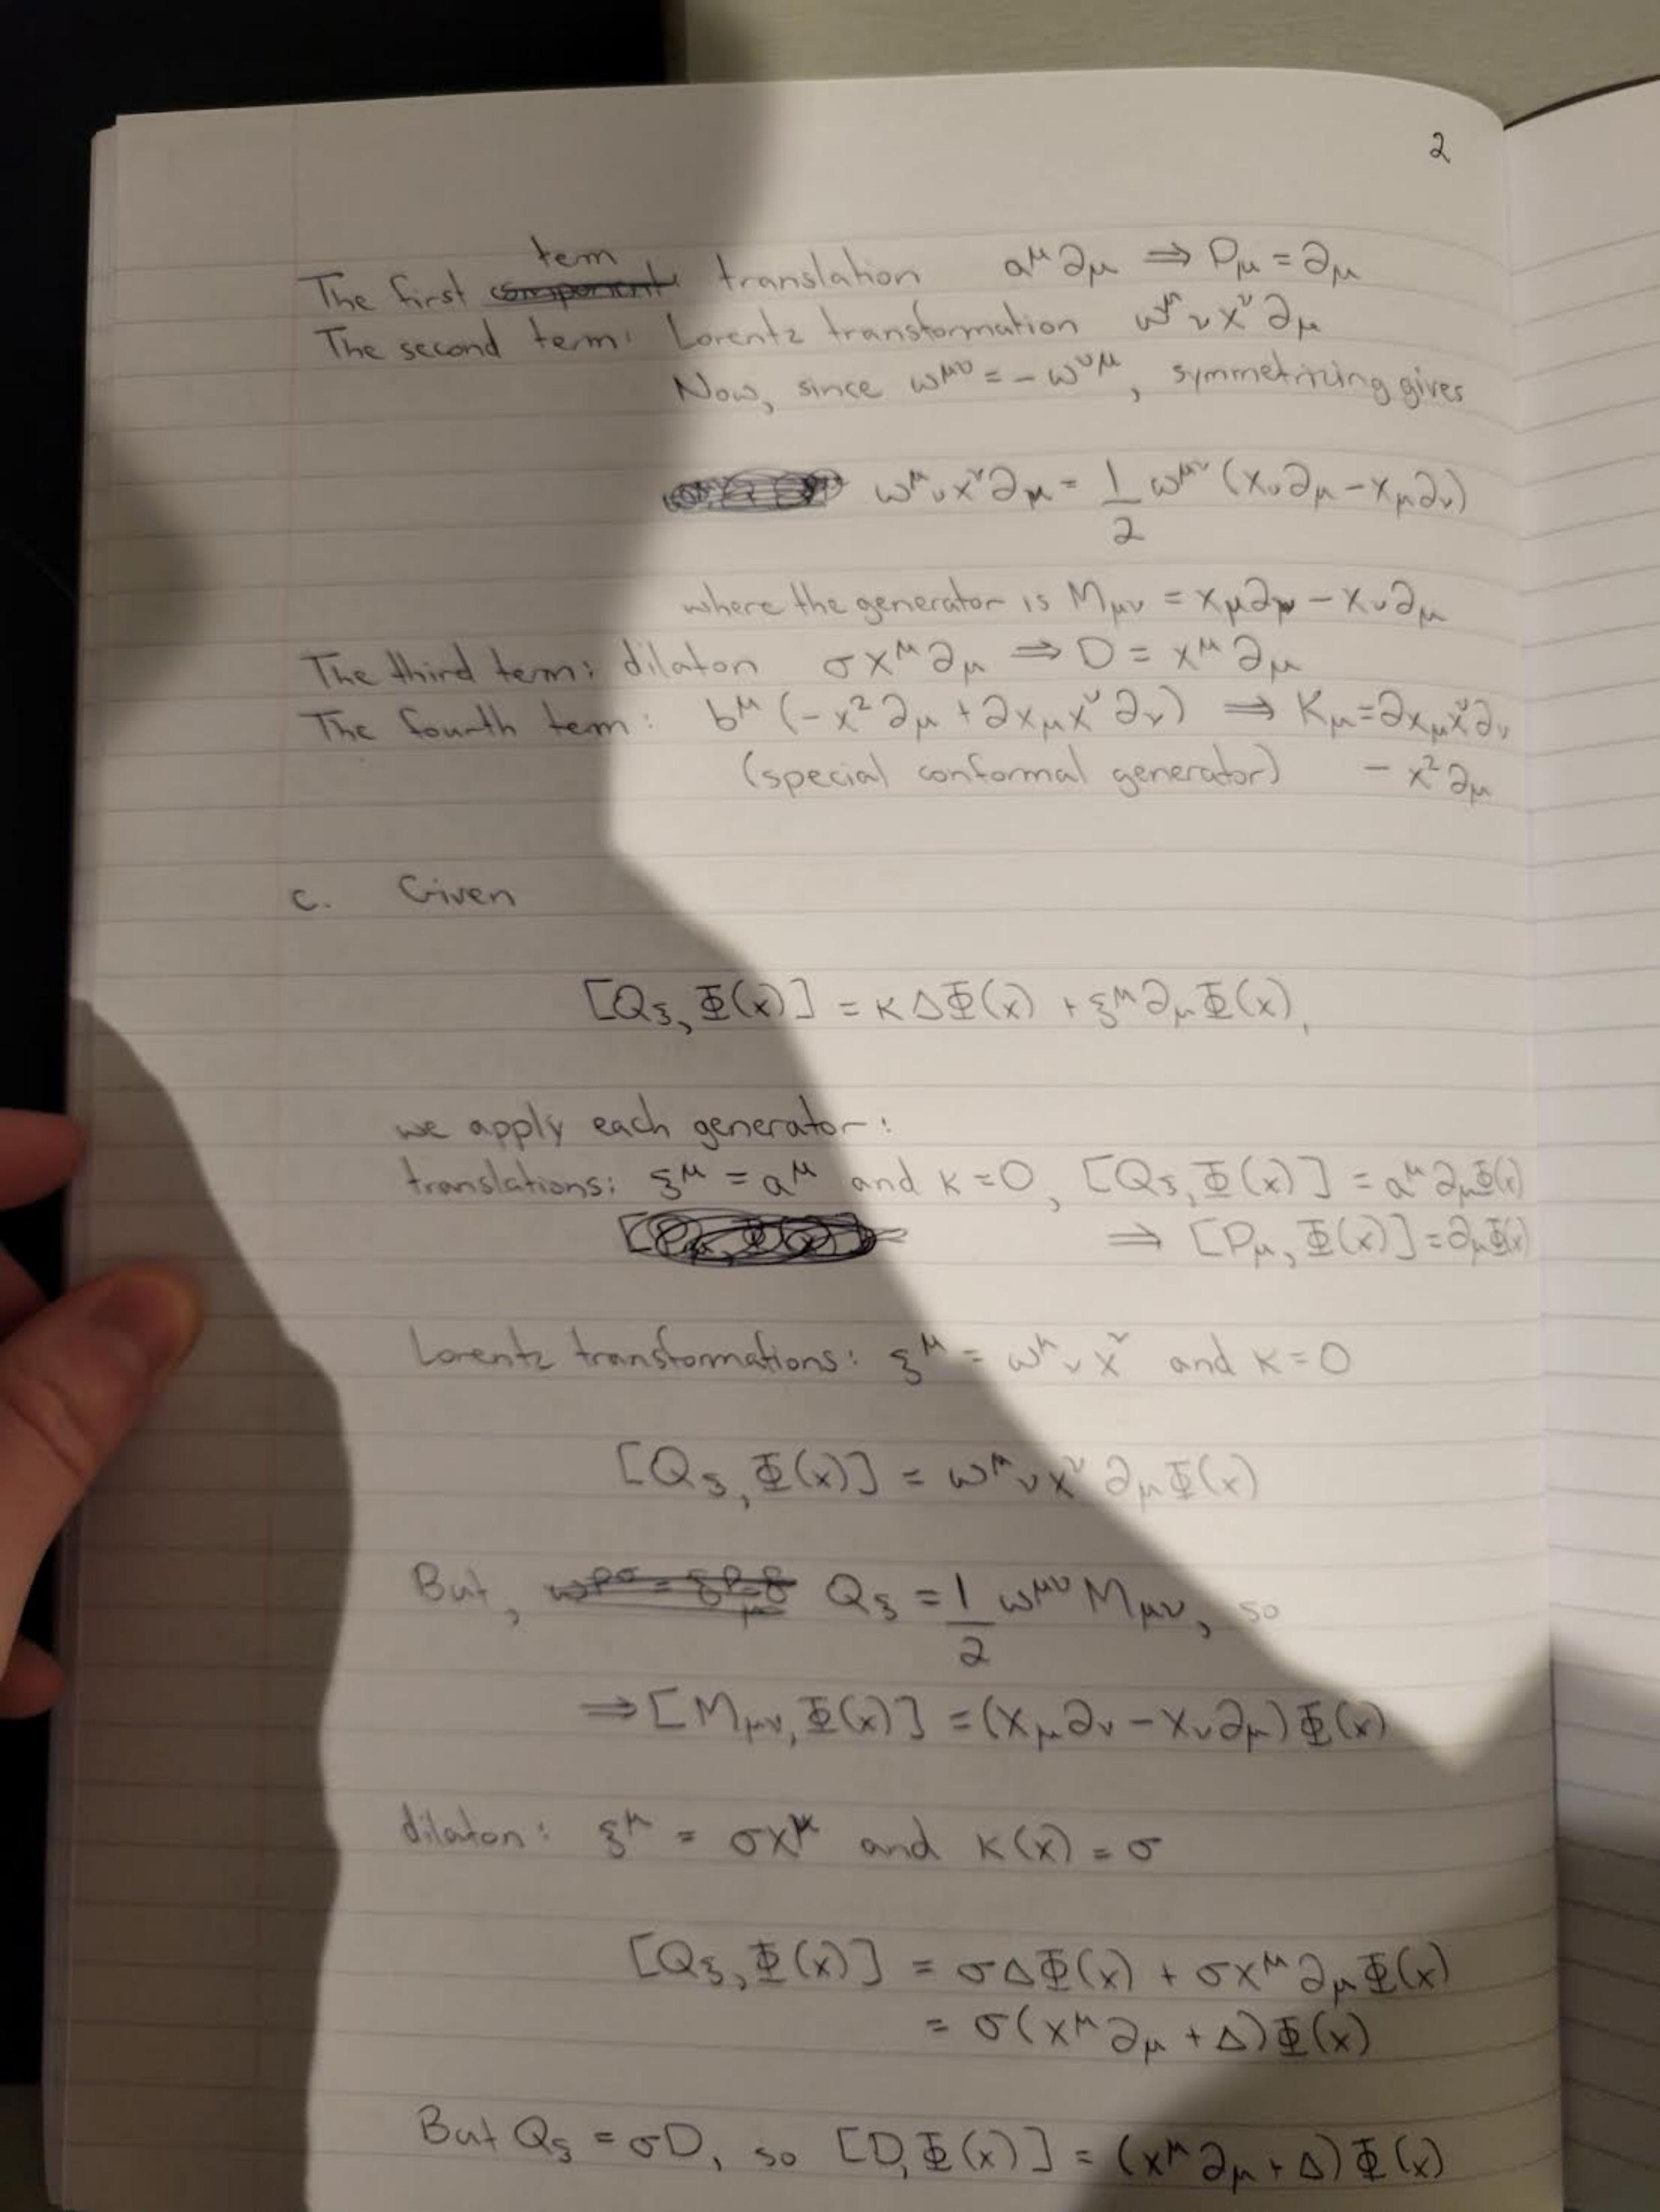 2
term
The first component translation a^μ ∂_μ ⇒ P_μ = ∂_μ
The second term: Lorentz transformation ω^μ_ν x^ν ∂_μ
Now, since ω^{μν} = -ω^{νμ}, symmetrizing gives
ω^μ_ν x^ν ∂_μ = 1/2 ω^{μν} (x_ν ∂_μ - x_μ ∂_ν)
where the generator is M_{μν} = x_μ ∂_ν - x_ν ∂_μ
The third term: dilaton σ x^μ ∂_μ ⇒ D = x^μ ∂_μ
The fourth term: b^μ (-x² ∂_μ + 2x_μ x^ν ∂_ν) ⇒ K_μ = 2x_μ x^ν ∂_ν
(special conformal generator) - x² ∂_μ
c. Given
[Q_ξ, Φ(x)] = κ Δ Φ(x) + ξ^μ ∂_μ Φ(x),
we apply each generator:
translations: ξ^μ = a^μ and κ = 0, [Q_ξ, Φ(x)] = a^μ ∂_μ Φ(x)
⇒ [P_μ, Φ(x)] = ∂_μ Φ(x)
Lorentz transformations: ξ^μ = ω^μ_ν x^ν and κ = 0
[Q_ξ, Φ(x)] = ω^μ_ν x^ν ∂_μ Φ(x)
But, Q_ξ = 1/2 ω^{μν} M_{μν}, so
⇒ [M_{μν}, Φ(x)] = (x_μ ∂_ν - x_ν ∂_μ) Φ(x)
dilaton: ξ^μ = σ x^μ and κ(x) = σ
[Q_ξ, Φ(x)] = σ Δ Φ(x) + σ x^μ ∂_μ Φ(x)
= σ (x^μ ∂_μ + Δ) Φ(x)
But Q_ξ = σD, so [D, Φ(x)] = (x^μ ∂_μ + Δ) Φ(x)